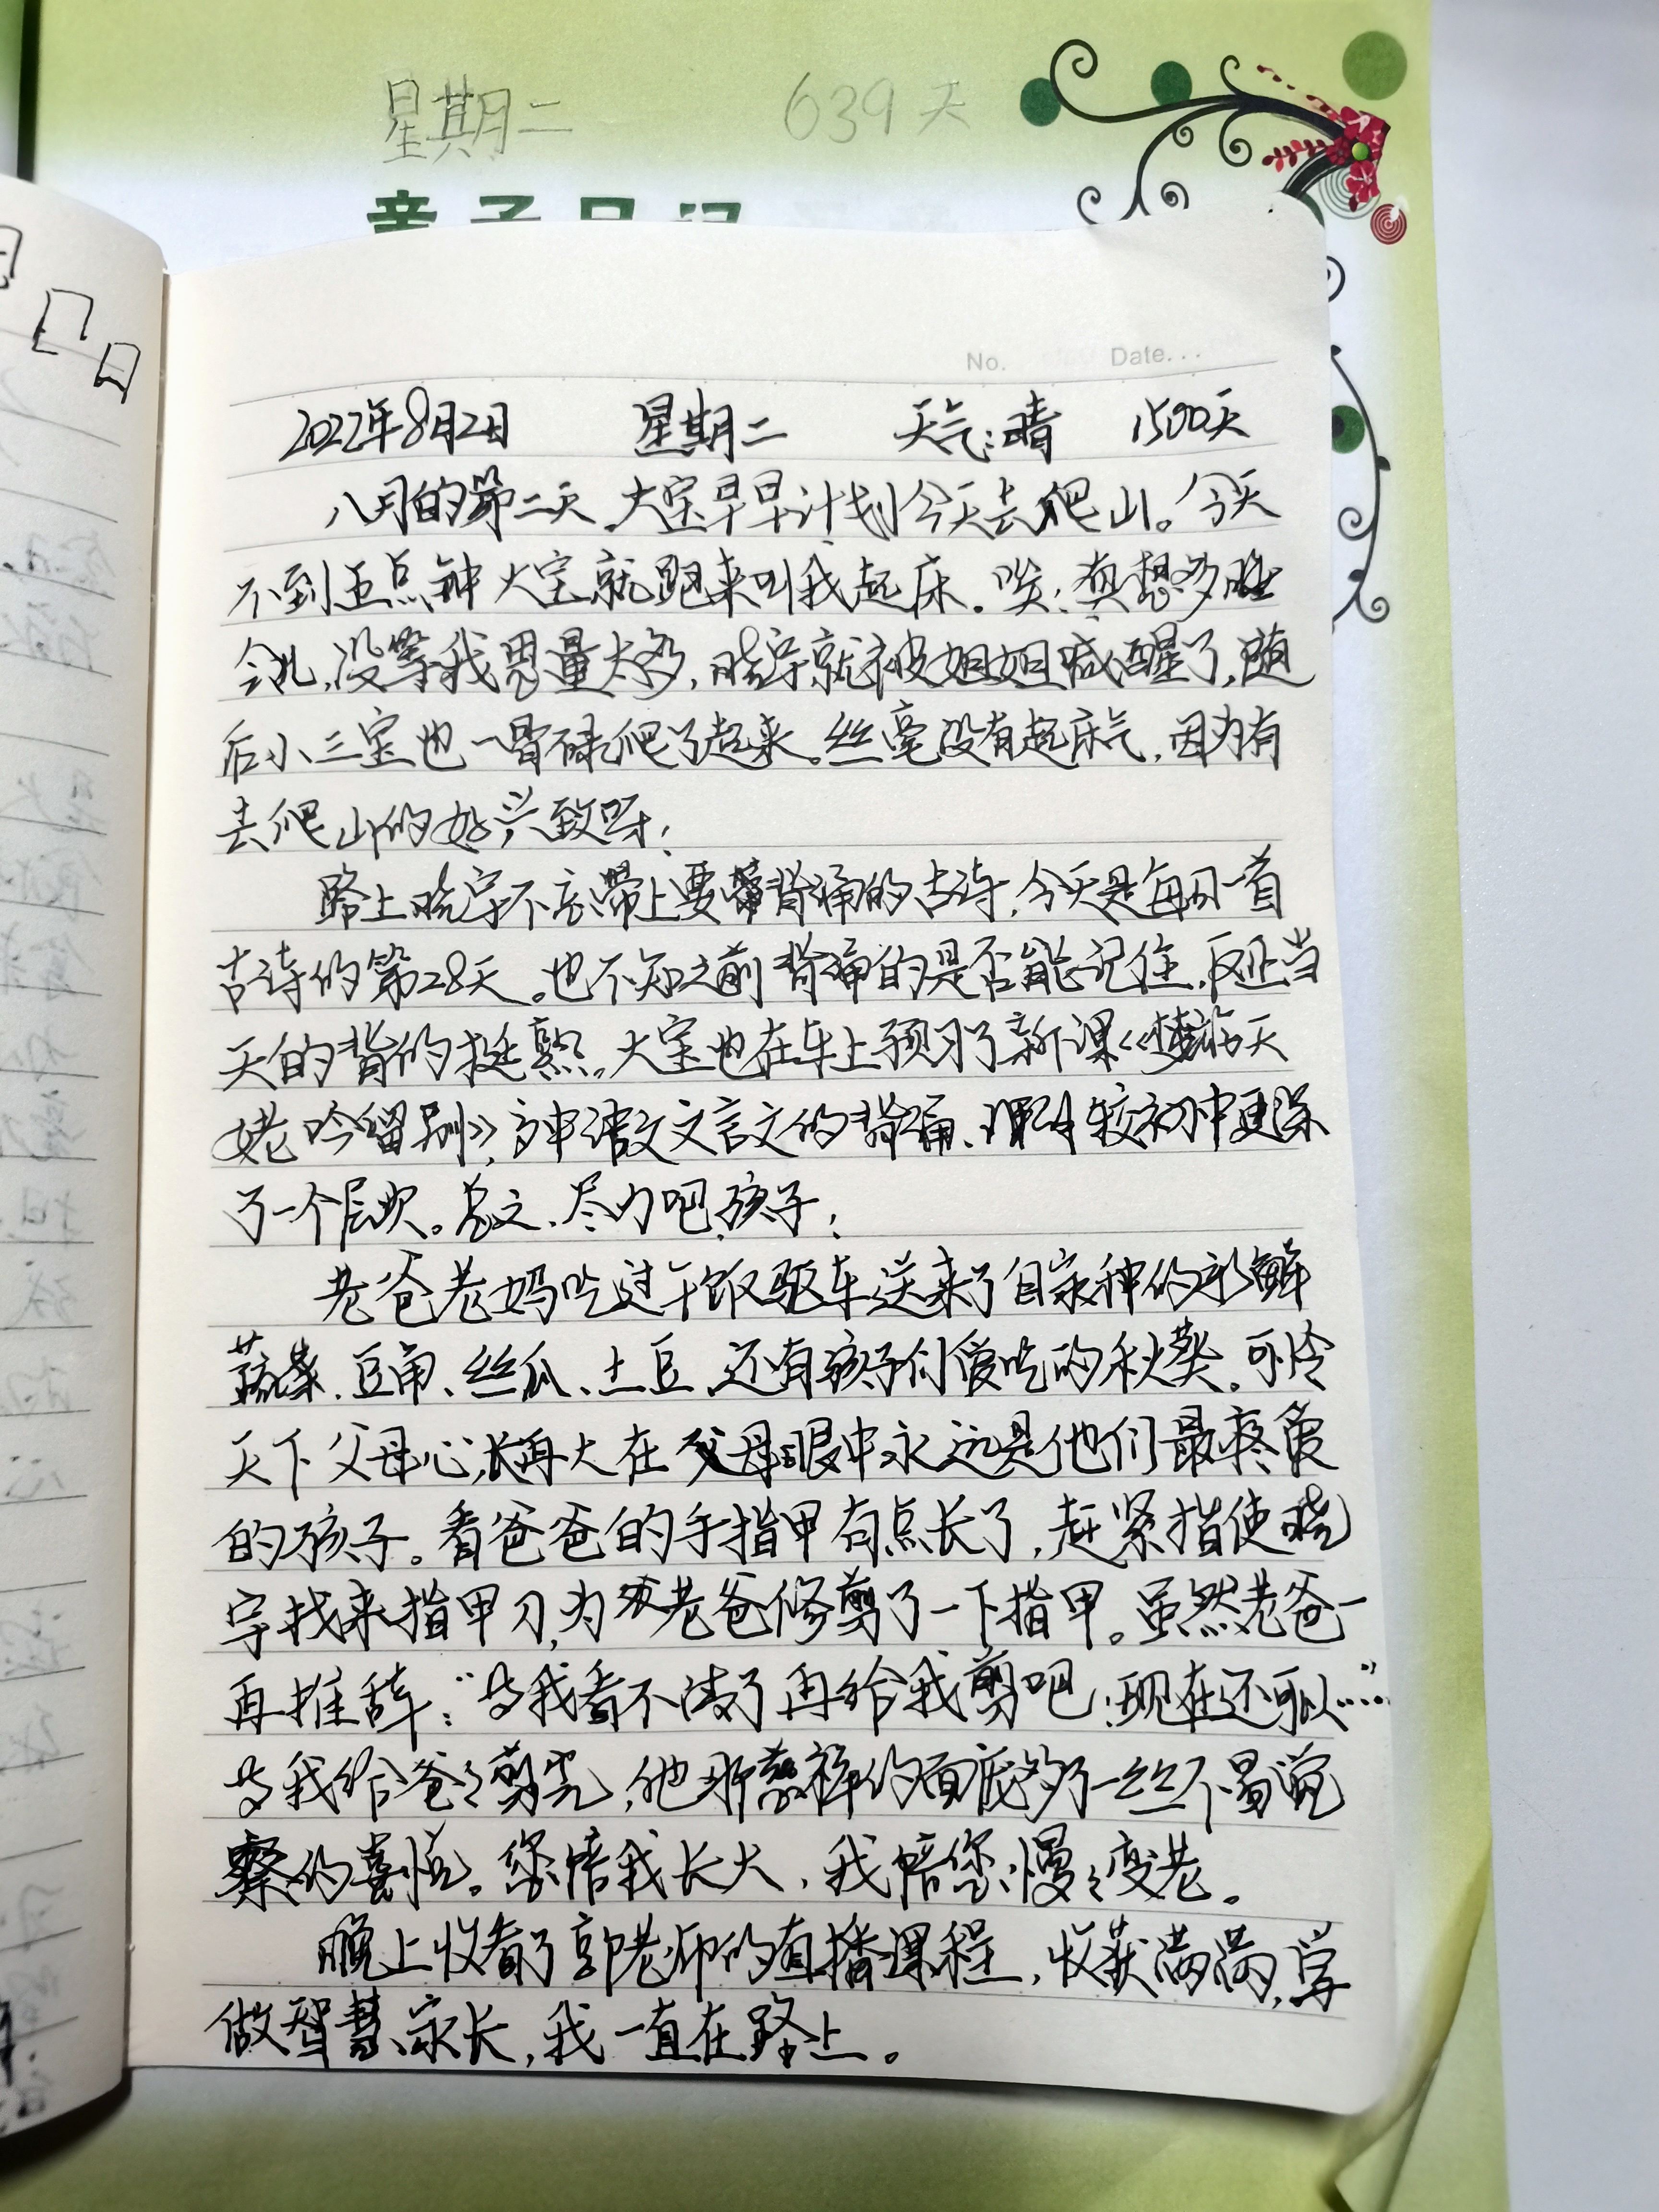 星期二 639天
亲子日记
No. Date...
2022年8月2日 星期二 天气:晴 1500天
八月的第二天,大宝早早计划今天去爬山。今天
不到五点钟大宝就跑来叫我起床。唉!真想多睡
会儿,没等我思量太多,晓宇就被姐姐喊醒了,随
后小三宝也一骨碌爬了起来。丝毫没有起床气,因为有
去爬山的好兴致呀!
路上晓宇不忘带上要背诵的古诗,今天是每日一首
古诗的第28天。也不知之前背诵的是否能记住,反正当
天的背的挺熟。大宝也在车上预习了新课《梦游天
姥吟留别》,高中语文文言文的背诵、理解较初中更深
了一个层次。总之、尽力吧,孩子!
老爸老妈吃过午饭驱车送来了自家种的新鲜
蔬菜、豆角、丝瓜、土豆、还有孩子们爱吃的秋葵。可怜
天下父母心,长再大在父母眼中永远是他们最疼爱
的孩子。看爸爸的手指甲有点长了,赶紧指使晓
宇找来指甲刀,为老爸修剪了一下指甲。虽然老爸一
再推辞:“等我看不清了再给我剪吧!现在还可以……”
等我给爸爸剪完,他那慈祥的面庞多了一丝不易觉
察的喜悦。您陪我长大,我陪您慢慢变老。
晚上收看了郭老师的直播课程,收获满满,学
做智慧家长,我一直在路上。